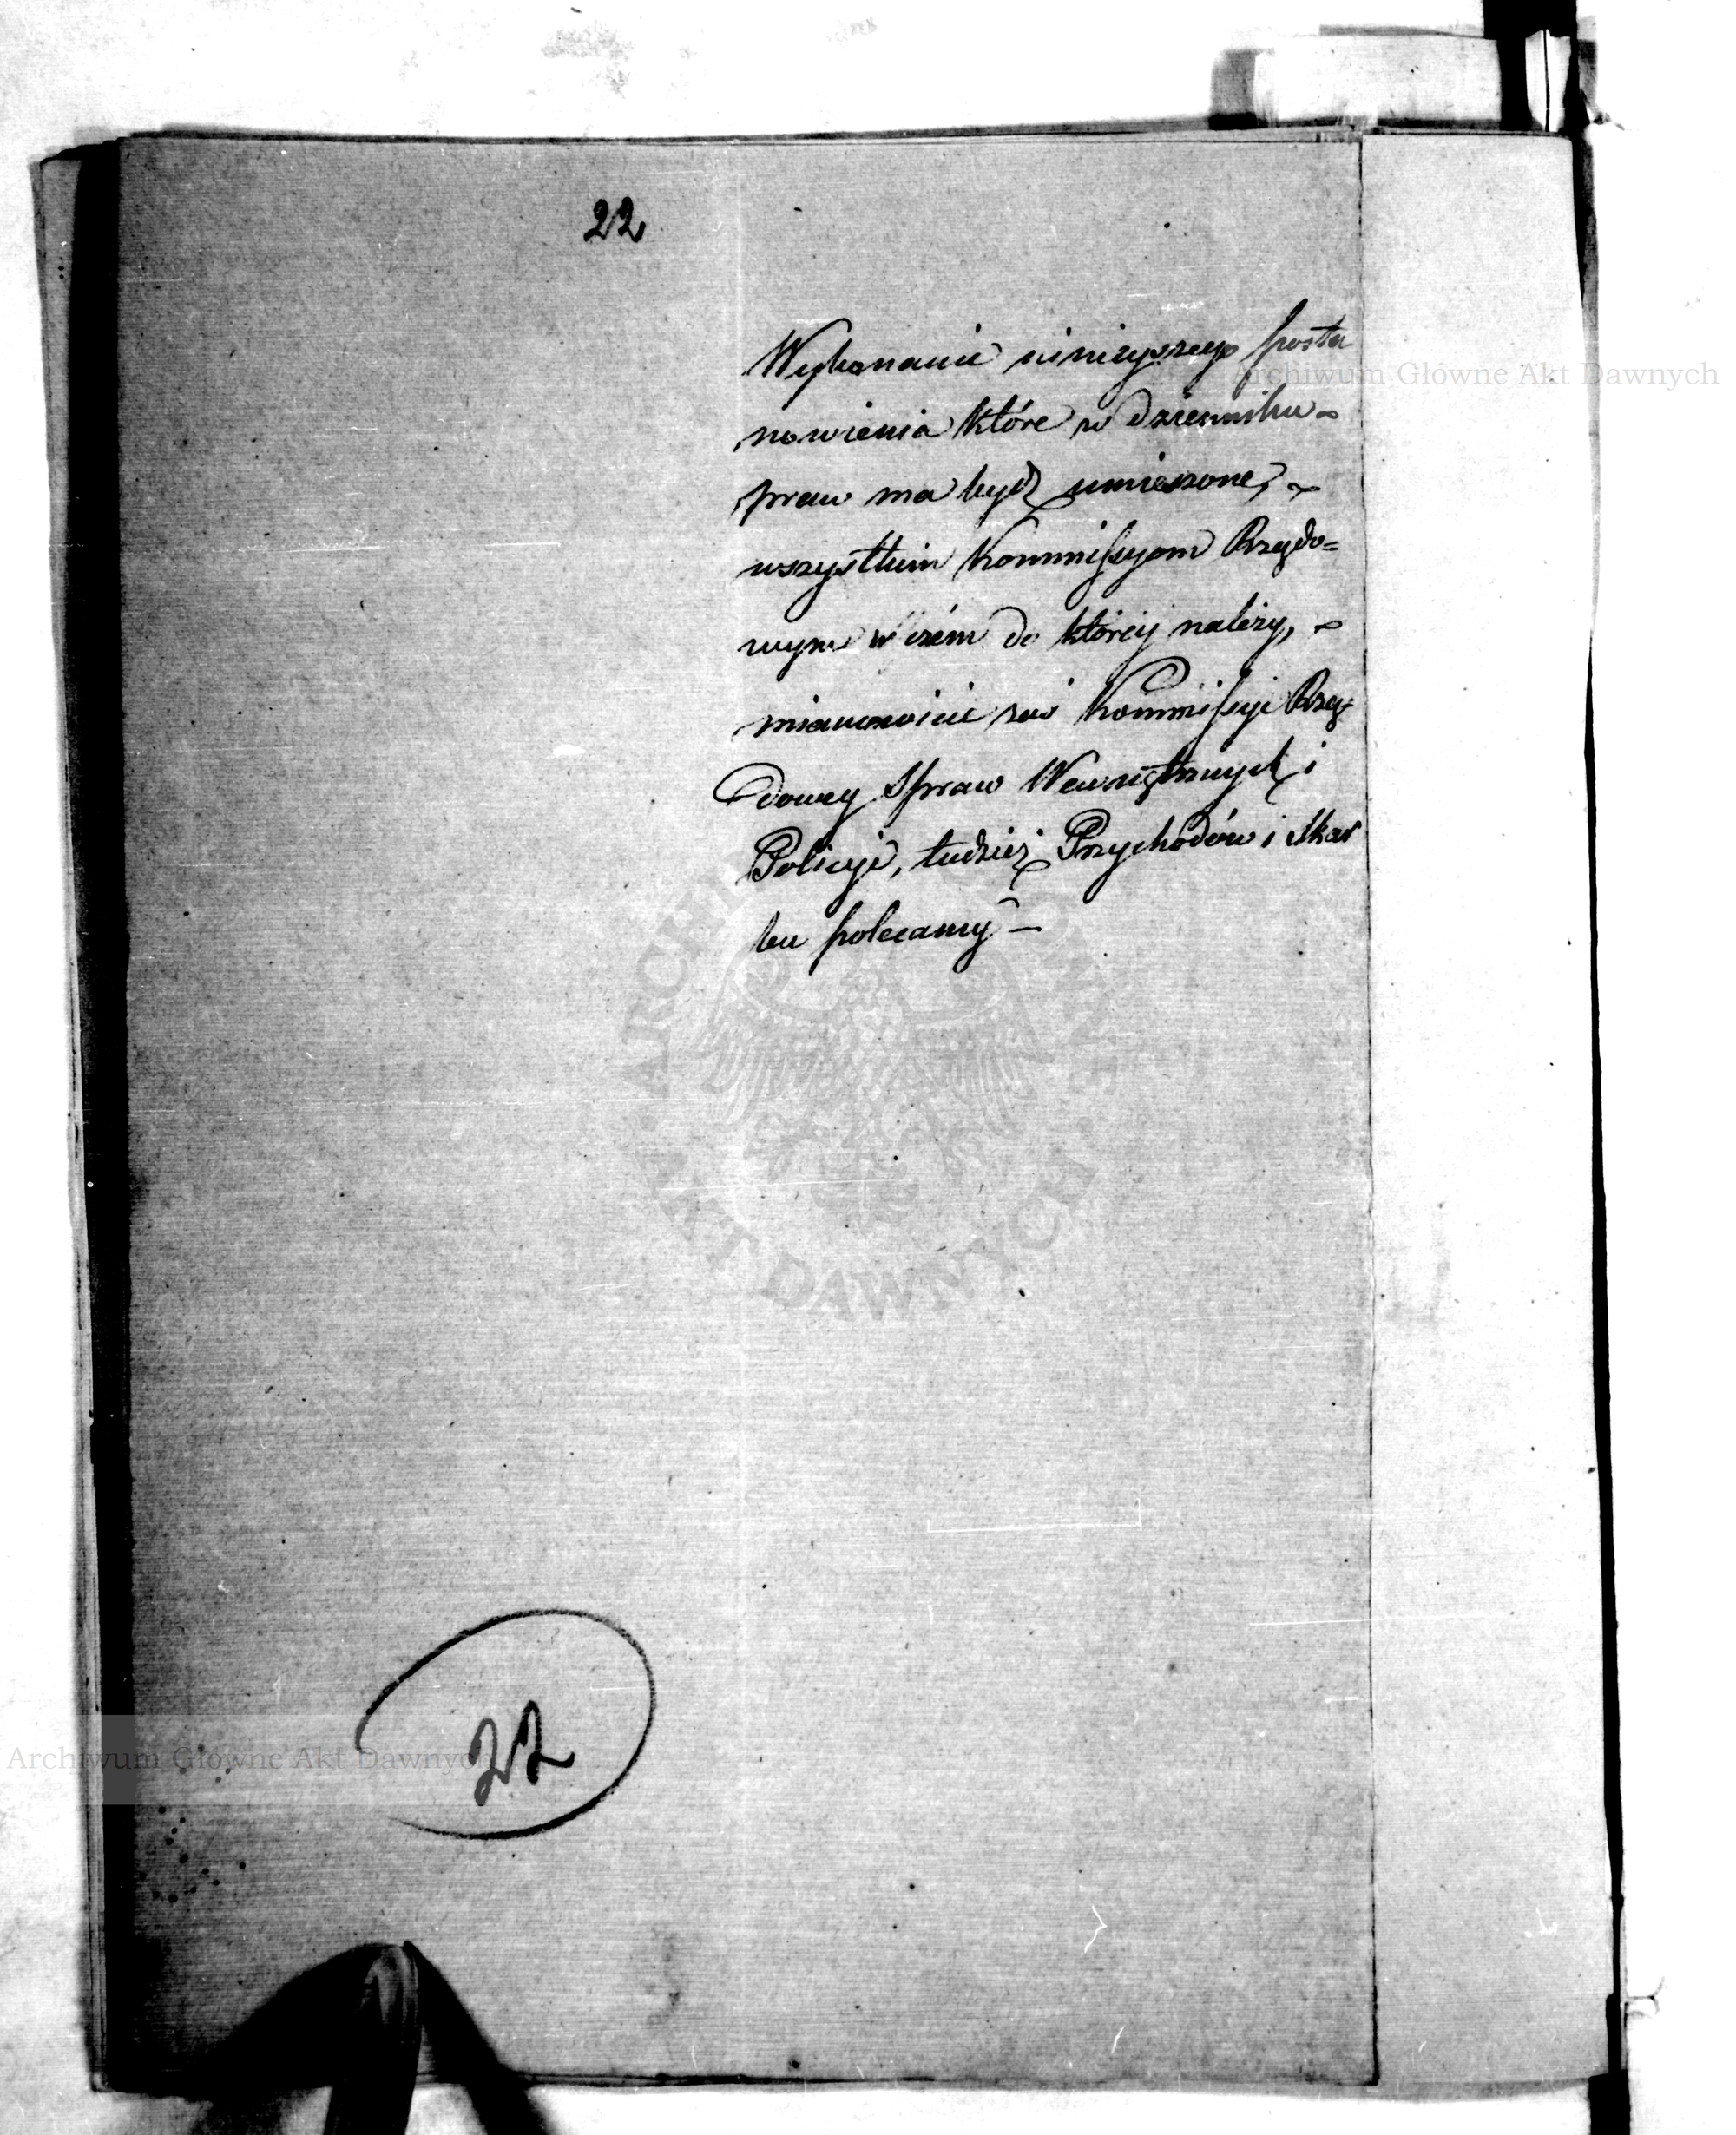 22
Wykonanie ninieyszego posta
nowienia które w dzienniku
praw ma bydź umieszone,
wszystkim Kommissyom Rządo=
wym w czém do któréy należy,
mianowicie zaś Kommissyi Rzą=
dowey Spraw Wewnętrznych i
Policyi, tudzież Przychodów i Skar
bu polecamy —
22
Archiwum Główne Akt Dawnych
Archiwum Główne Akt Dawnych
AKT DAWNYCH